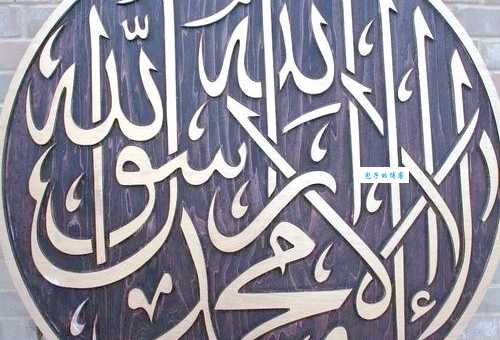 لا إله إلا الله
محمد رسول الله
包子的博客